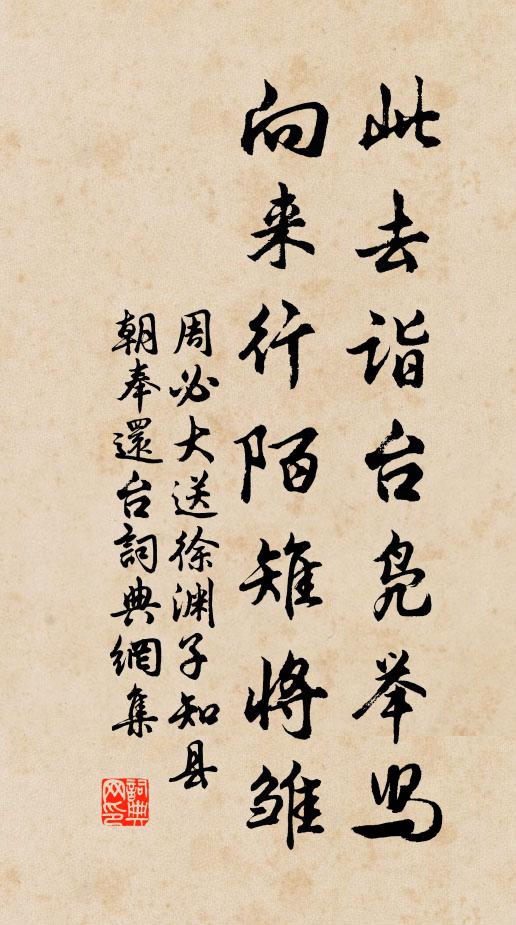 此去诣台凫举舄
向来行陌雉将雏
周必大送徐渊子知县
朝奉還台詞典網集
詞典
网印